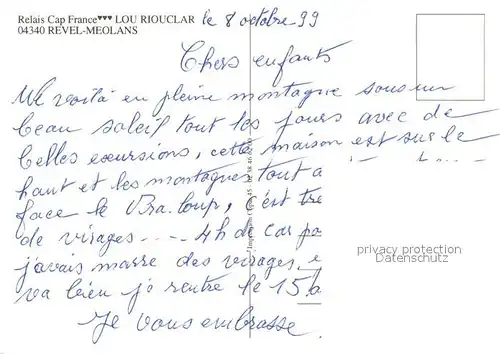 Relais Cap France♥♥♥ LOU RIOUCLAR
04340 REVEL-MEOLANS
le 8 octobre 99
Chers enfants
Me voilà en pleine montagne sous un
beau soleil tout les jours avec de
belles excursions, cette maison est sur le
haut et les montagnes tout a
face le Bra. loup, c'est tre
de virages ---- 4h de car pa
j'avais marre des virages, e
va bien je rentre le 15 b
Je vous embrasse
privacy protection
Datenschutz